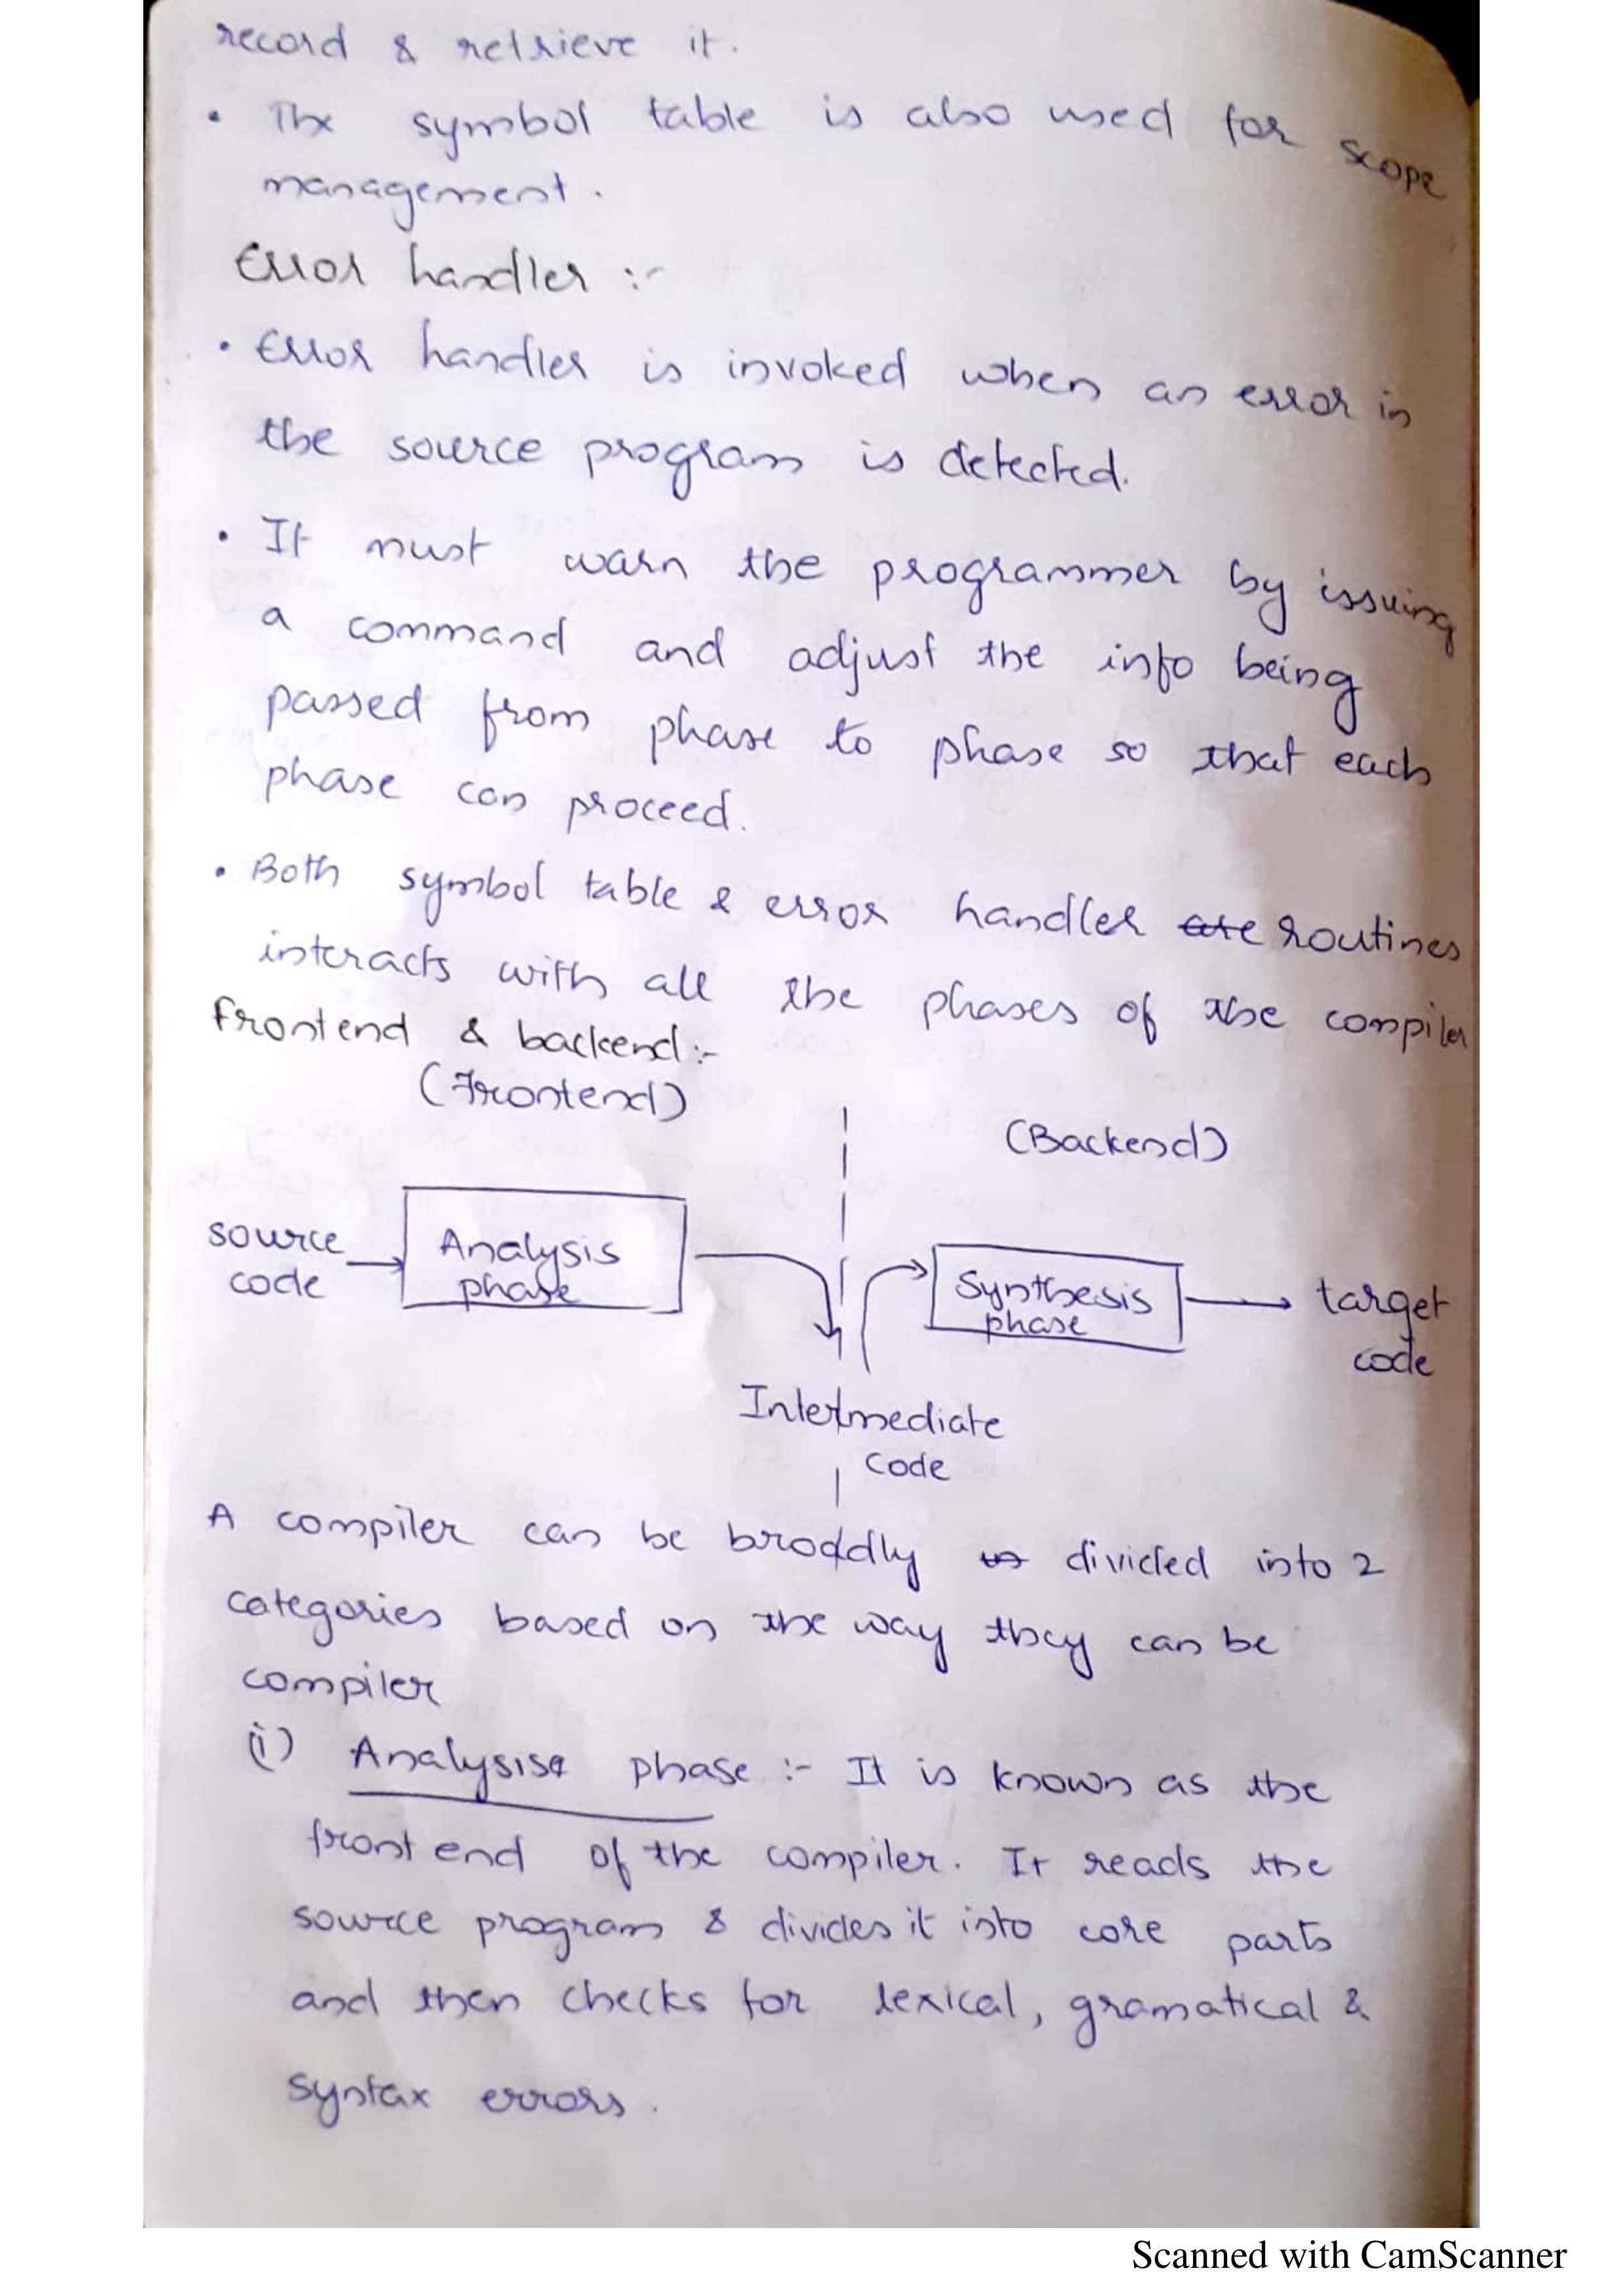 record & retrieve it.
• The symbol table is also used for scope
management.
Error handler :-
• Error handler is invoked when an error in
the source program is detected.
• It must warn the programmer by issuing
a command and adjust the info being
passed from phase to phase so that each
phase can proceed.
• Both symbol table & error handler are routines
interacts with all the phases of the compiler
frontend & backend :-
(Frontend)
(Backend)
source
code
Analysis
phase
Synthesis
phase
target
code
Intermediate
code
A compiler can be broddly divided into 2
categories based on the way they can be
compiler
(i) Analysis phase :- It is known as the
front end of the compiler. It reads the
source program & divides it into core parts
and then checks for lexical, gramatical &
syntax errors.
Scanned with CamScanner